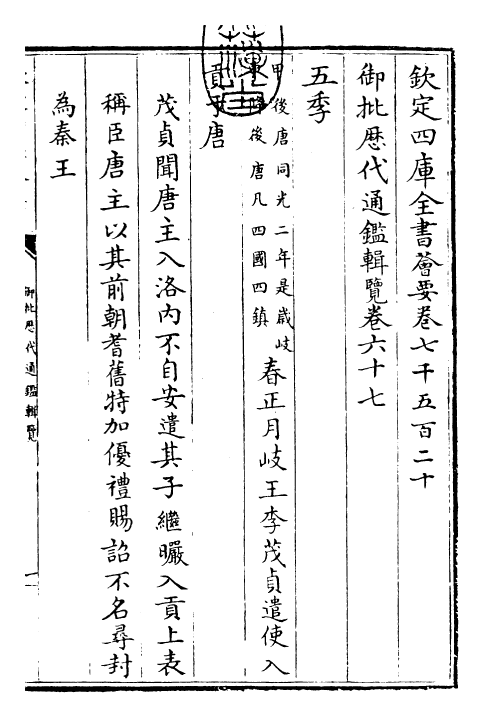 欽定四庫全書薈要卷七千五百二十
御批歷代通鑑輯覽卷六十七
五季
甲 後唐同光二年是歲岐
降後唐凡四國四鎮
春正月岐王李茂貞遣使入
貢于唐
茂貞聞唐主入洛內不自安遣其子繼曮入貢上表
稱臣唐主以其前朝耆舊特加優禮賜詔不名尋封
為秦王
御批歷代通鑑輯覽
一